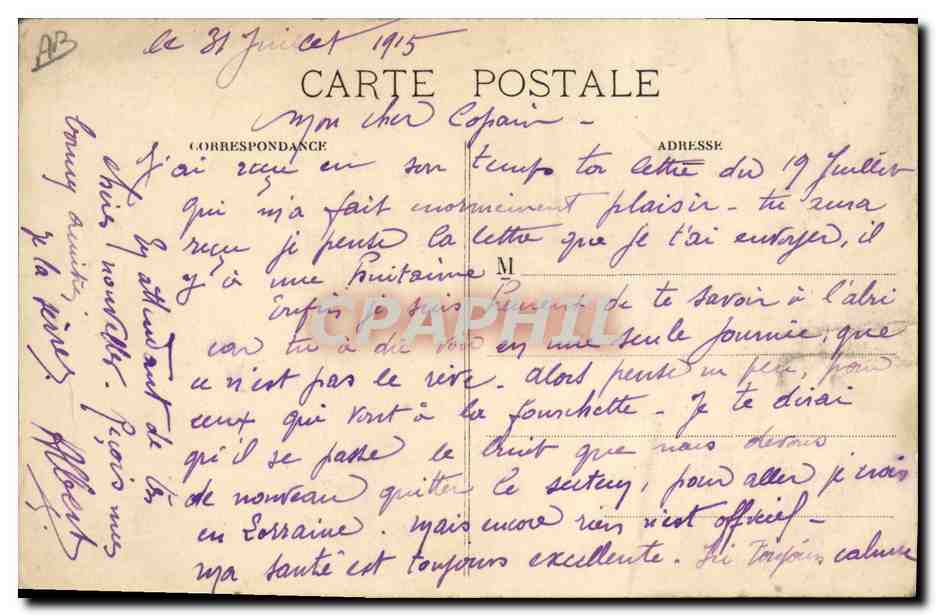 AB
le 31 Juillet 1915
CARTE POSTALE
Mon cher Copain -
CORRESPONDANCE
ADRESSE
J'ai reçu en son temps ta lettre du 19 Juillet
qui m'a fait enormement plaisir - tu aura
reçu je pense la lettre que je t'ai envoyer, il
y à une huitaine
M
Enfin je suis heureux de te savoir à l'abri
car tu à dû voir en une seule journée, que
ce n'est pas le rêve. alors pense un peu, pour
ceux qui vont à la fourchette - Je te dirai
qu'il se passe le bruit que nous devons
de nouveau quitter le secteur, pour aller je crois
en Lorraine. Mais encore rien n'est officiel -
ma santé est toujours excellente. Ici toujours calme
En attendant de tes
chères nouvelles. Reçois mes
bonnes amitiés
je la serre.
Albert
CPAPHIL